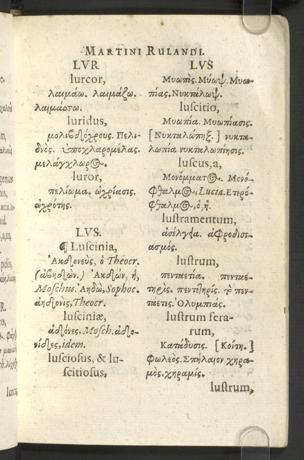 MARTINI RULANDI.
LVR
lurcor,
λαιμάω. λαιμάζω.
λαιμάσσω.
luridus,
μολιβδόχρους. Πελι-
δνὸς. ὑποχλαρομέλας.
μελάγχλωρος.
luror,
πελίωμα, ὠχρίασις.
ὠχρότης.
LVS.
¶ Luscinia,
Ἀκδονεὺς, ὁ Theocr.
(ἀηδών.) Ἀηδὼν, ἡ,
Moschus. Ἀηδὼ, Sophoc.
ἀηδονὶς, Theocr.
lusciniæ,
ἀηδόνες. Mosch. ἀηδο-
νίδες, idem.
lusciosus, & lu-
scitiosus,
LVS
Μυωπὸς. Μύωψ. Μυω-
πίας. Νυκτάλωψ.
luscitio,
Μυωπία. Μυωπίασις.
[Νυκταλώπηξ.] νυκτα-
λωπία νυκταλωπίησις.
luscus, a,
Μονόμματος. Μονό-
φθαλμος, Lucia. Ἑτερό-
φθαλμος, ὁ, ἡ.
lustramentum,
ἀσέλγεια. ἀφροδισι-
ασμός.
lustrum,
πενταετία. πενταε-
τηρὶς. πεντηρὶς. τὸ πεν-
ταετὲς. Ὀλυμπιάς.
lustrum fera-
rum,
Κατάδυσις. [Κοίτη.]
Φωλεὸς. Σπήλαιον χηρα-
μὸς. χηραμίς.
lustrum,